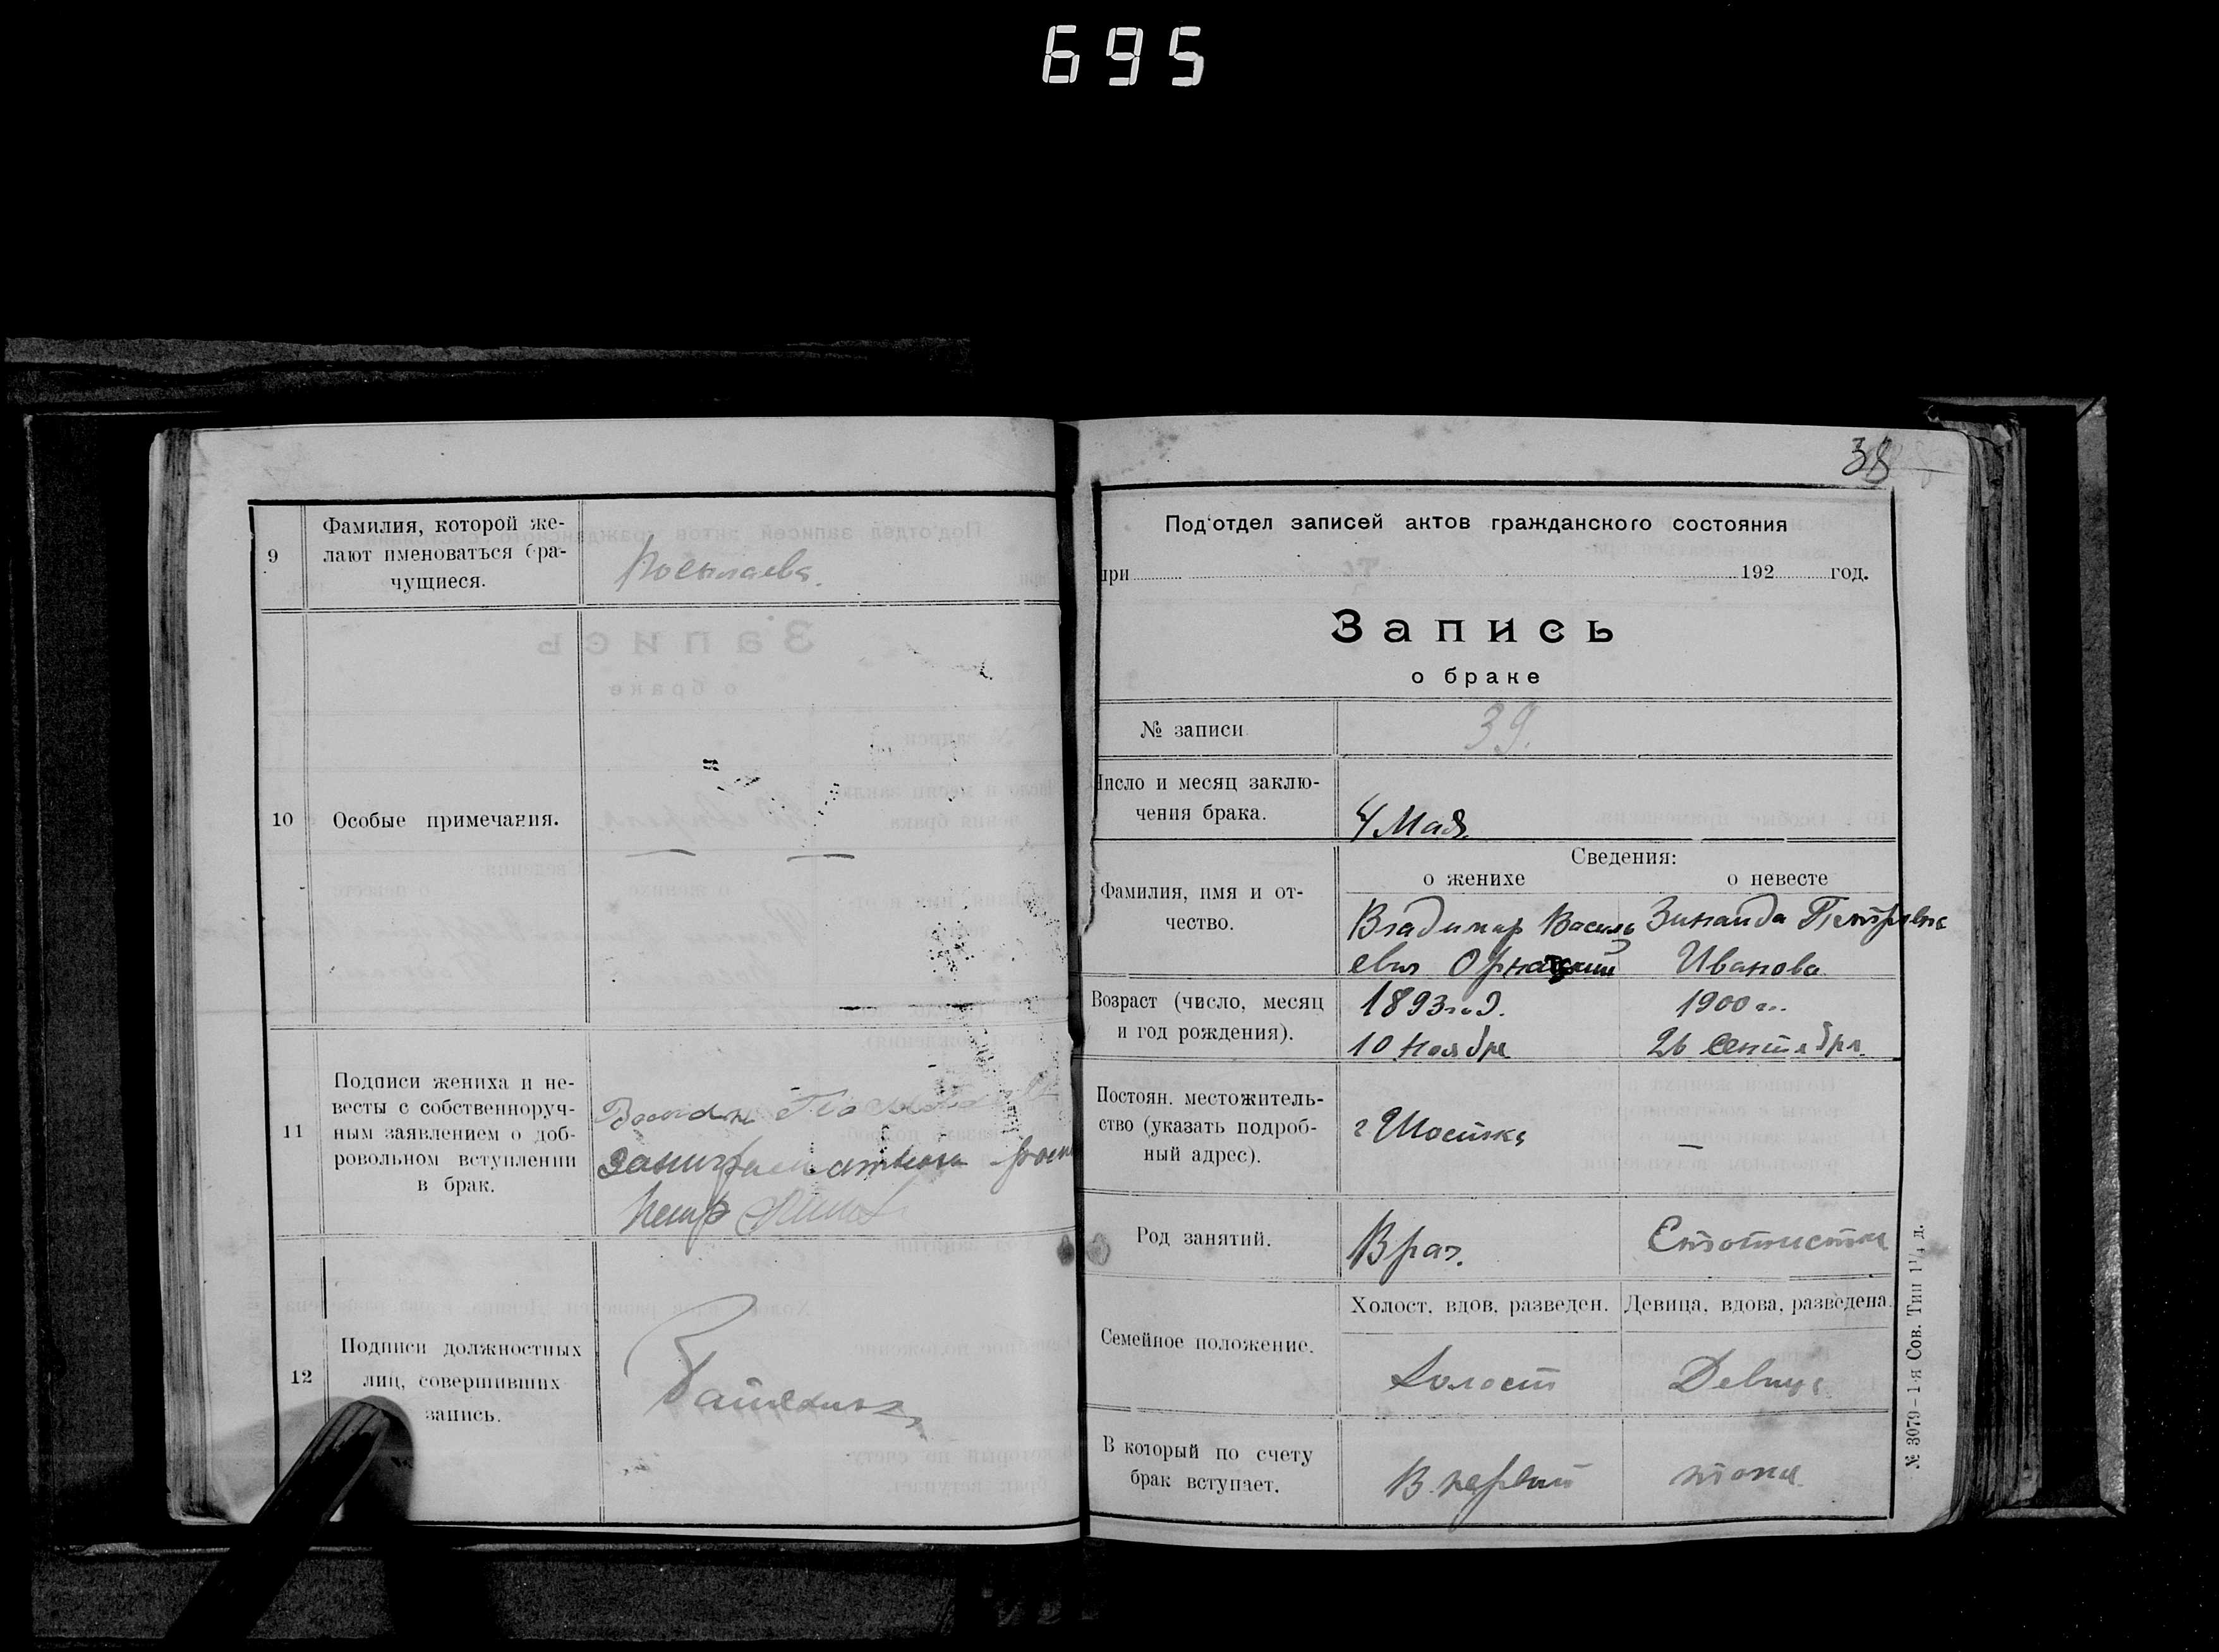 695
9
Фамилия, которой же-
лают именоваться бра-
чущиеся.
10
Особые примечания.
11
Подписи жениха и не-
весты с собственноруч-
ным заявлением о доб-
ровольном вступлении
в брак.
Петр
12
Подписи должностных
лиц, совершивших
запись.
38
Под'отдел записей актов гражданского состояния
при 192 год.
Запись
о браке
№ записи
39.
Число и месяц заклю-
чения брака.
4 Мая.
Сведения:
о женихе
о невесте
Фамилия, имя и от-
чество.
Владимир Василь
евич Орнатский
Зинаида Петровна
Иванова
Возраст (число, месяц
и год рождения).
1893 год.
10 Ноября
1900 г.
26 Сентября.
Постоян. местожитель-
ство (указать подроб-
ный адрес).
г Шостка
—
Род занятий.
Врач.
Статистка
Семейное положение.
Холост, вдов, разведен.
Девица, вдова, разведена.
Холост
Девица
В который по счету
брак вступает.
В первый
тоже
№ 3079–1-я Сов. Тип 1¼ д.